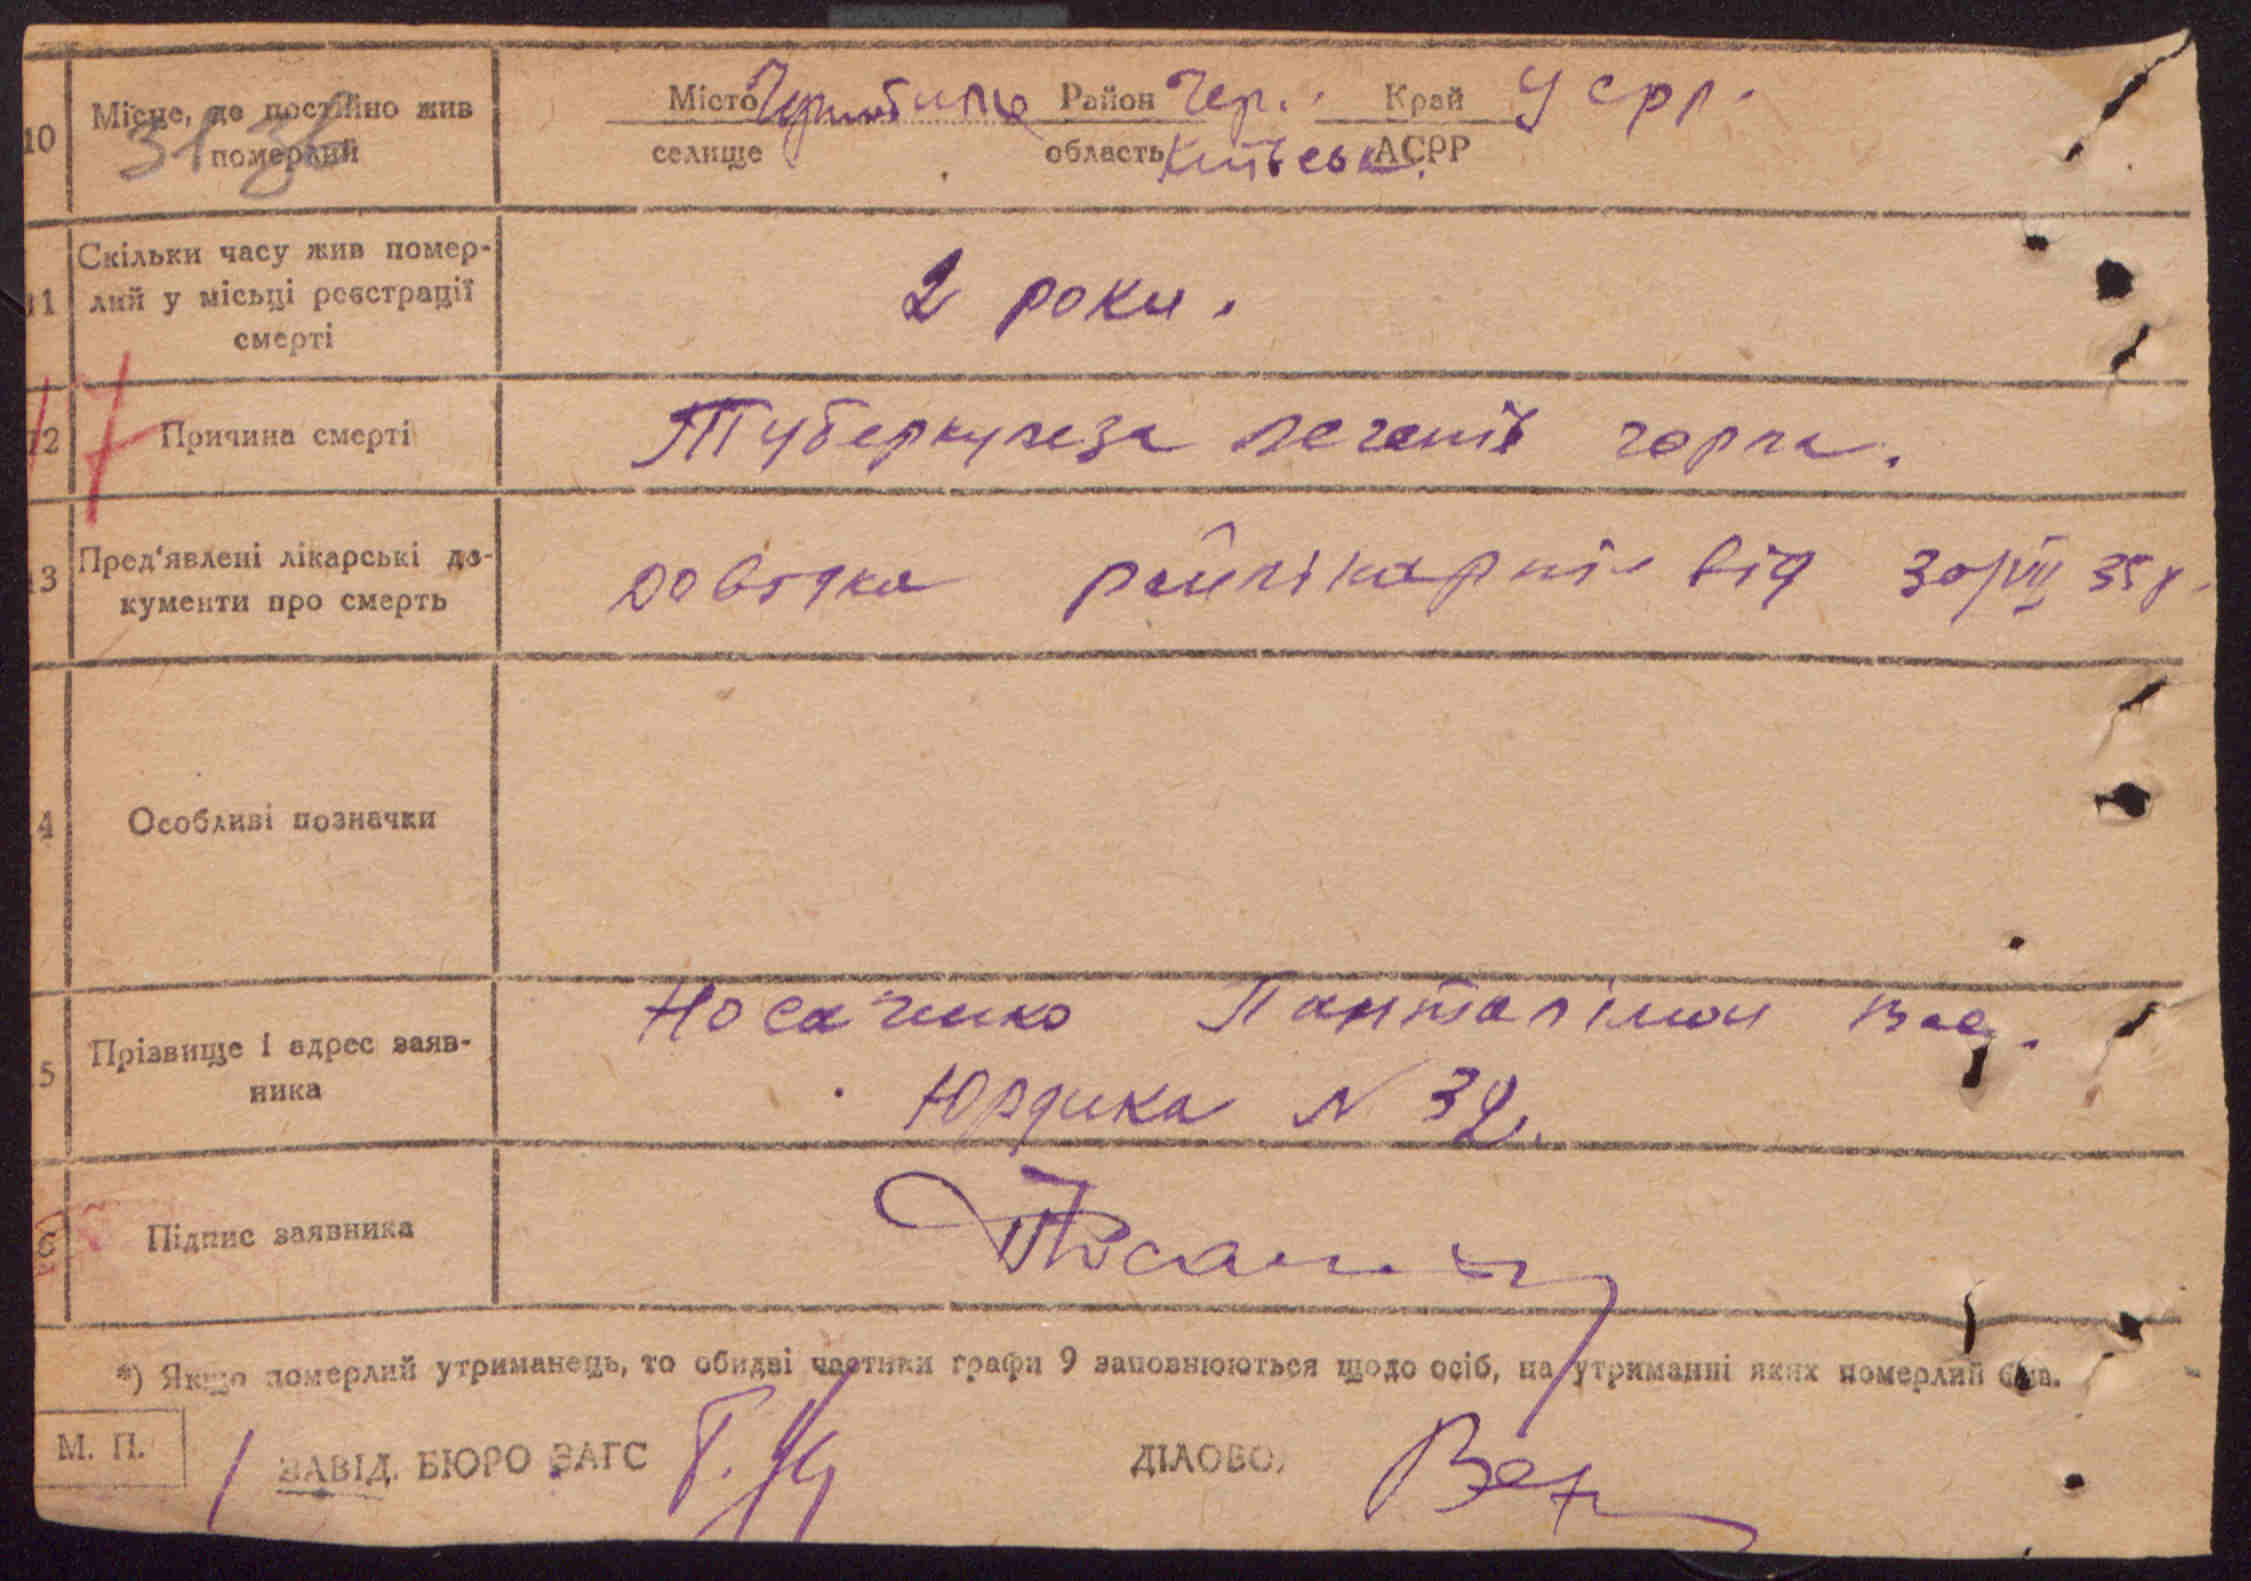 10 Місце, де постійно жив померлий
31
Місто Район Чер. Край УСРР.
селище область Київськ. АСРР
11 Скільки часу жив помер-
лий у місьці реєстрації
смерті
2 роки.
12 Причина смерті
Туберкульоза легенів горла.
13 Пред'явлені лікарські до-
кументи про смерть
Довідка райлікарні від 30/VII 35 р.
4 Особливі позначки
5 Прізвище і адрес заяв-
ника
Носаченко Панталімон Вас.
Юрдика N 32.
6 Підпис заявника
*) Якщо померлий утриманець, то обидві частини графи 9 заповнюються щодо осіб, на утриманні яких померлий був.
М. П.
ЗАВІД. БЮРО ЗАГС ДІЛОВОД